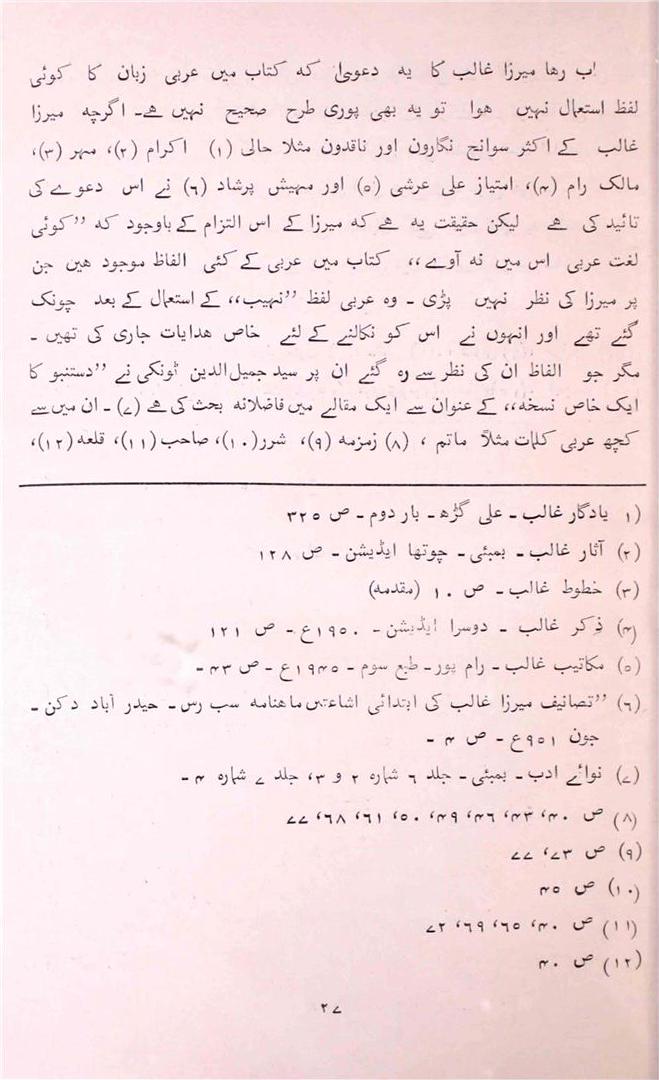 اب رہا میرزا غالب کا یہ دعویٰ کہ کتاب میں عربی زبان کا کوئی
لفظ استعمال نہیں ہوا تو یہ بھی پوری طرح صحیح نہیں ہے۔ اگرچہ میرزا
غالب کے اکثر سوانح نگارون اور ناقدون مثلا حالی (۱) اکرام (۲)، مہر (۳)،
مالک رام (۴)، امتیاز علی عرشی (۵) اور مہیش پرشاد (۶) نے اس دعوے کی
تائید کی ہے لیکن حقیقت یہ ہے کہ میرزا کے اس التزام کے باوجود کہ ”کوئی
لغت عربی اس میں نہ آوے،، کتاب میں عربی کے کئی الفاظ موجود ہین جن
پر میرزا کی نظر نہیں پڑی ۔ وہ عربی لفظ ”نہیب،، کے استعمال کے بعد چونک
گئے تھے اور انہوں نے اس کو نکالنے کے لئے خاص ہدایات جاری کی تھیں ۔
مگر جو الفاظ ان کی نظر سے رہ گئے ان پر سید جمیل الدین ٹونکی نے ”دستنبو کا
ایک خاص نسخہ،، کے عنوان سے ایک مقالے میں فاضلانہ بحث کی ہے (۷) ۔ ان میں سے
کچھ عربی کلمات مثلاً ماتم ، (۸) زمزمہ (۹)، شرر(۱۰)، صاحب (۱۱)، قلعہ (۱۲)،
(۱ یادگار غالب ۔ علی گڑھ ۔ بار دوم ۔ ص ۳۲۵
(۲) آثار غالب ۔ بمبئی ۔ چوتھا ایڈیشن ۔ ص ۱۲۸
(۳) خطوط غالب ۔ ص ۱۰ (مقدمہ)
(۴) ذکر غالب ۔ دوسرا ایڈیشن ۔ ۱۹۵۰ع ۔ ص ۱۲۱
(۵) مکاتیب غالب ۔ رام پور ۔ طبع سوم ۔ ۱۹۴۵ع ۔ ص ۴۳ ۔
(۶) ”تصانیف میرزا غالب کی ابتدائی اشاعتیں ماہنامہ سب رس ۔ حیدر آباد دکن ۔
جون ۹۵۱ع ۔ ص ۴ ۔
(۷) نوائے ادب ۔ بمبئی ۔ جلد ۶ شمارہ ۲ و ۳، جلد ۷ شمارہ ۴ ۔
(۸) ص ۴۰، ۴۳، ۴۶، ۴۹، ۵۰، ۶۱، ۶۸، ۷۷
(۹) ص ۷۳، ۷۷
(۱۰) ص ۴۵
(۱۱) ص ۴۰، ۶۵، ۶۹، ۷۲
(۱۲) ص ۴۰
۲۷